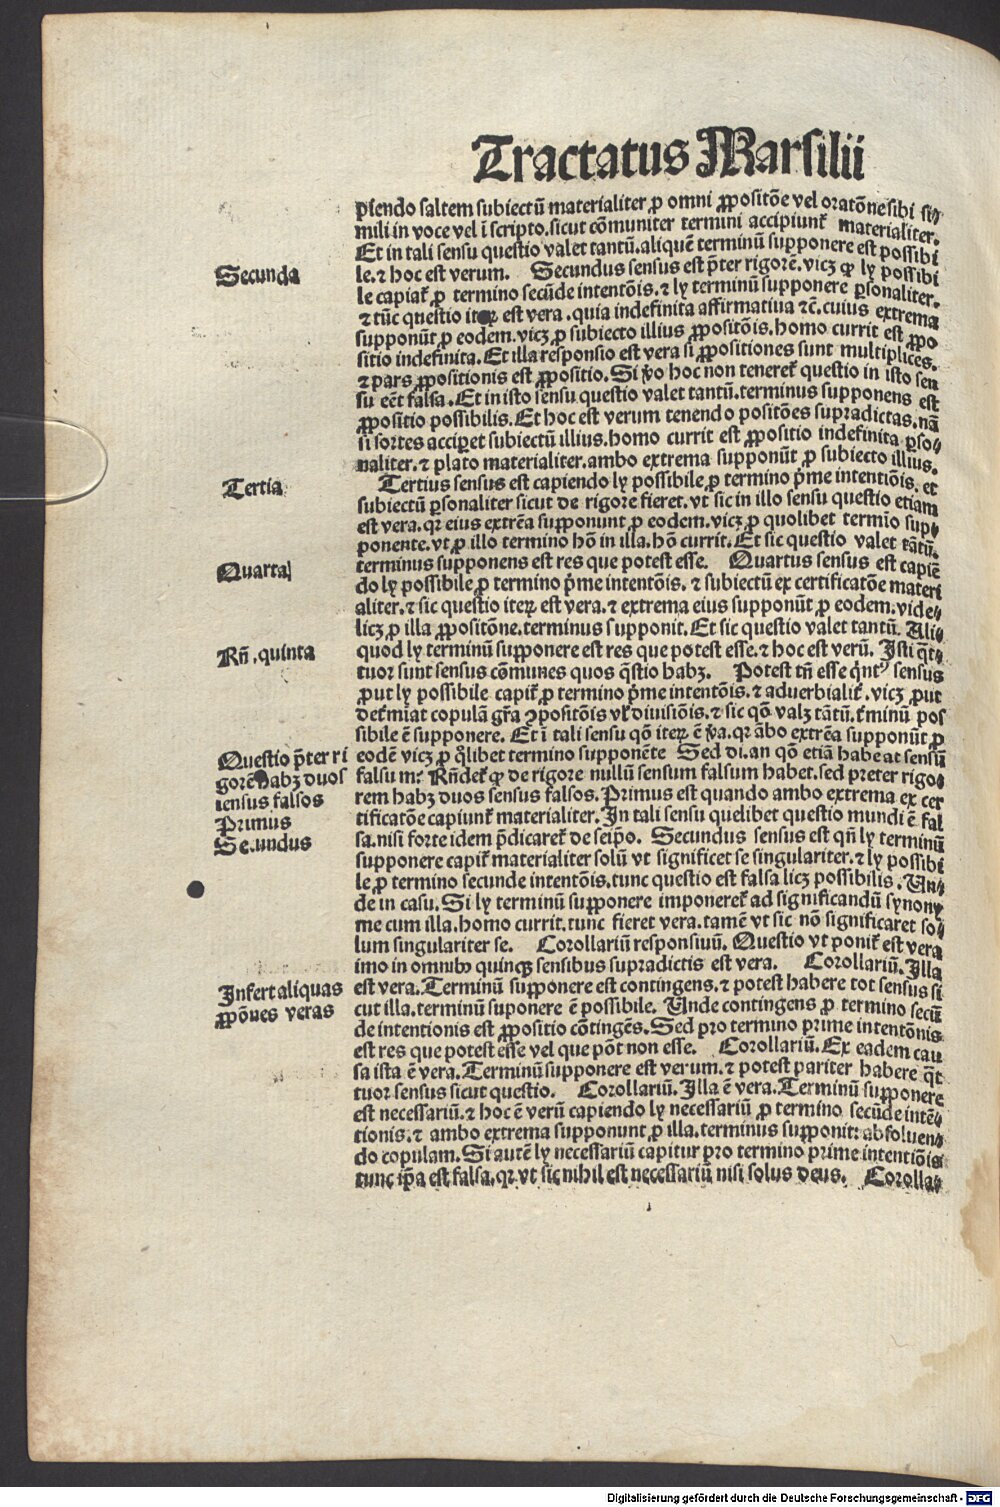 Tractatus Marsilii
piendo saltem subiectū materialiter ꝓ omni ꝓpositōe vel oratōne sibi si⸗
mili in voce vel ī scripto. sicut cōmuniter termini accipiunt᷑ materialiter.
Et in tali sensu questio valet tantū. aliquē terminū supponere est possibi
Secunda
le. ⁊ hoc est verum. Secundus sensus est p̄ter rigorē. vicꝫ ꝙ ly possibi
le capiat᷑ ꝓ termino secūde intentōis. ⁊ ly terminū supponere ꝑsonaliter.
⁊ tūc questio iteꝝ est vera. quia indefinita affirmatiua ⁊c̄. cuius extrema
supponūt ꝓ eodem. vicꝫ ꝓ subiecto illius ꝓpositōis. homo currit est ꝓpo
sitio indefinita. Et illa responsio est vera si ꝓpositiones sunt multiplices.
⁊ pars ꝓpositionis est ꝓpositio. Si v̄o hoc non teneret᷑ questio in isto sen
su eēt falsa. Et in isto sensu questio valet tantū. terminus supponens est
ꝓpositio possibilis. Et hoc est verum tenendo positōes supradictas. nā
si sortes acciꝑet subiectū illius. homo currit est ꝓpositio indefinita ꝑso⸗
naliter. ⁊ plato materialiter. ambo extrema supponūt ꝓ subiecto illius.
Tertia
Tertius sensus est capiendo ly possibile ꝓ termino p̄me intentiōis. et
subiectū ꝑsonaliter sicut de rigore fieret. vt sic in illo sensu questio etiam
est vera. qꝛ eius extrēa supponunt ꝓ eodem. vicꝫ ꝓ quolibet termīo sup⸗
ponente. vt ꝓ illo termino hō in illa. hō currit. Et sic questio valet tātū.
Quarta
terminus supponens est res que potest esse. Quartus sensus est capiē
do ly possibile ꝓ termino p̄me intentōis. ⁊ subiectū ex certificatōe materi
aliter. ⁊ sic questio iteꝝ est vera. ⁊ extrema eius supponūt ꝓ eodem. vide⸗
licꝫ ꝓ illa ꝓpositōne. terminus supponit. Et sic questio valet tantū. Ali⸗
Rn̄. quinta
quod ly terminū supponere est res que potest esse. ⁊ hoc est verū. Isti q̄t⸗
tuor sunt sensus cōmunes quos q̄stio habꝫ. Potest tn̄ esse q̇ntꝰ sensus
ꝓut ly possibile capit᷑ ꝓ termino p̄me intentōis. ⁊ aduerbialit᷑. vicꝫ ꝓut
det᷑miat copulā gr̄a ꝯpositōis vl᷑ diuisiōis. ⁊ sic qō valꝫ tātū. t᷑minū pos
sibile ē supponere. Et ī tali sensu qō iteꝝ ē v̄a. qꝛ ābo extrēa supponūt ꝓ
Questio p̄ter ri
eodē vicꝫ ꝓ q̊libet termino supponēte Sed di. an qō etiā habeat sensū
gorē habꝫ duos
falsum: Rn̄det᷑ ꝙ de rigore nullū sensum falsum habet. sed preter rigo⸗
sensus falsos
rem habꝫ duos sensus falsos. Primus est quando ambo extrema ex cer
Primus
tificatōe capiunt᷑ materialiter. In tali sensu quelibet questio mundi ē fal
Secundus
sa. nisi forte idem p̄dicaret᷑ de seip̄o. Secundus sensus est qn̄ ly terminū
supponere capit᷑ materialiter solū vt significet se singulariter. ⁊ ly possibi
le ꝓ termino secunde intentōis. tunc questio est falsa licꝫ possibilis. Un⸗
de in casu. Si ly terminū supponere imponeret᷑ ad significandū synony⸗
me cum illa. homo currit. tunc fieret vera. tamē vt sic nō significaret so⸗
lum singulariter se. Corollariū responsiuū. Questio vt ponit᷑ est vera
imo in omnibꝰ quinqꝫ sensibus supradictis est vera. Corollariū. Illa
Infert aliquas
est vera. Terminū supponere est contingens. ⁊ potest habere tot sensus si
ꝓpōnes veras
cut illa. terminū suponere ē possibile. Unde contingens ꝓ termino secū
de intentionis est ꝓpositio cōtingēs. Sed pro termino prime intentōnis
est res que potest esse vel que pōt non esse. Corollariū. Ex eadem cau
sa ista ē vera. Terminū supponere est verum. ⁊ potest pariter habere q̄t
tuor sensus sicut questio. Corollariū. Illa ē vera. Terminū supponere
est necessariū. ⁊ hoc ē verū capiendo ly necessariū ꝓ termino secūde intē⸗
tionis. ⁊ ambo extrema supponunt ꝓ illa. terminus supponit: absoluen⸗
do copulam. Si autē ly necessariū capitur pro termino prime intentiōis
tunc ip̄a est falsa. qꝛ vt sic nihil est necessariū nisi solus deus. Corolla⸗
Digitalisierung gefördert durch die Deutsche Forschungsgemeinschaft - DFG